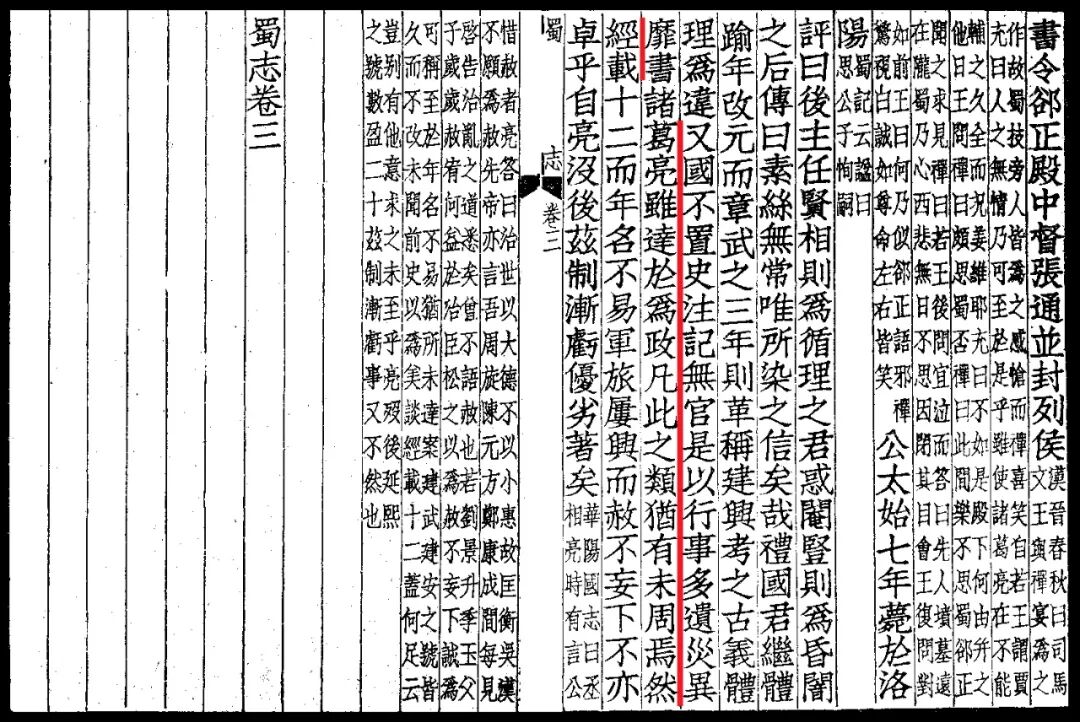 書令郤正殿中督張通並封列侯漢晉春秋曰司馬文王與禪宴爲之
作故蜀技旁人皆爲之感愴而禪喜笑自若王謂賈
充曰人之無情乃可至於是乎雖使諸葛亮在不能
輔之久全而況姜維耶充曰不如是殿下何由并之
他日王問禪曰頗思蜀否禪曰此間樂不思蜀郤正
聞之求見禪曰若王後問宜泣而答曰先人墳墓遠
在隴蜀乃心西悲無日不思因閉其目會王復問對
如前王曰何乃似郤正語邪禪
驚視白誠如尊命左右皆笑
公太始七年薨於洛
陽蜀記云諡曰思公子恂嗣
評曰後主任賢相則爲循理之君惑閹豎則爲昏闇
之后傳曰素絲無常唯所染之信矣哉禮國君繼體
踰年改元而章武之三年則革稱建興考之古義體
理爲違又國不置史注記無官是以行事多遺災異
靡書諸葛亮雖達於爲政凡此之類猶有未周焉然
經載十二而年名不易軍旅屢興而赦不妄下不亦
卓乎自亮沒後茲制漸虧優劣著矣華陽國志曰丞相亮時有言公
蜀志 卷三
惜赦者亮答曰治世以大德不以小惠故匡衡吳漢
不願爲赦先帝亦言吾周旋陳元方鄭康成間每見
啓告治亂之道悉矣曾不語赦也若劉景升季玉父
子歲歲赦宥何益於治臣松之以爲赦不妄下誠爲
可稱至於年名不易猶所未達案建武建安之號皆
久而不改未聞前史以爲美談經載十二蓋何足云
豈別有他意求之未至乎亮歿後延熙
之號數盈二十茲制漸虧事又不然也
蜀志卷三